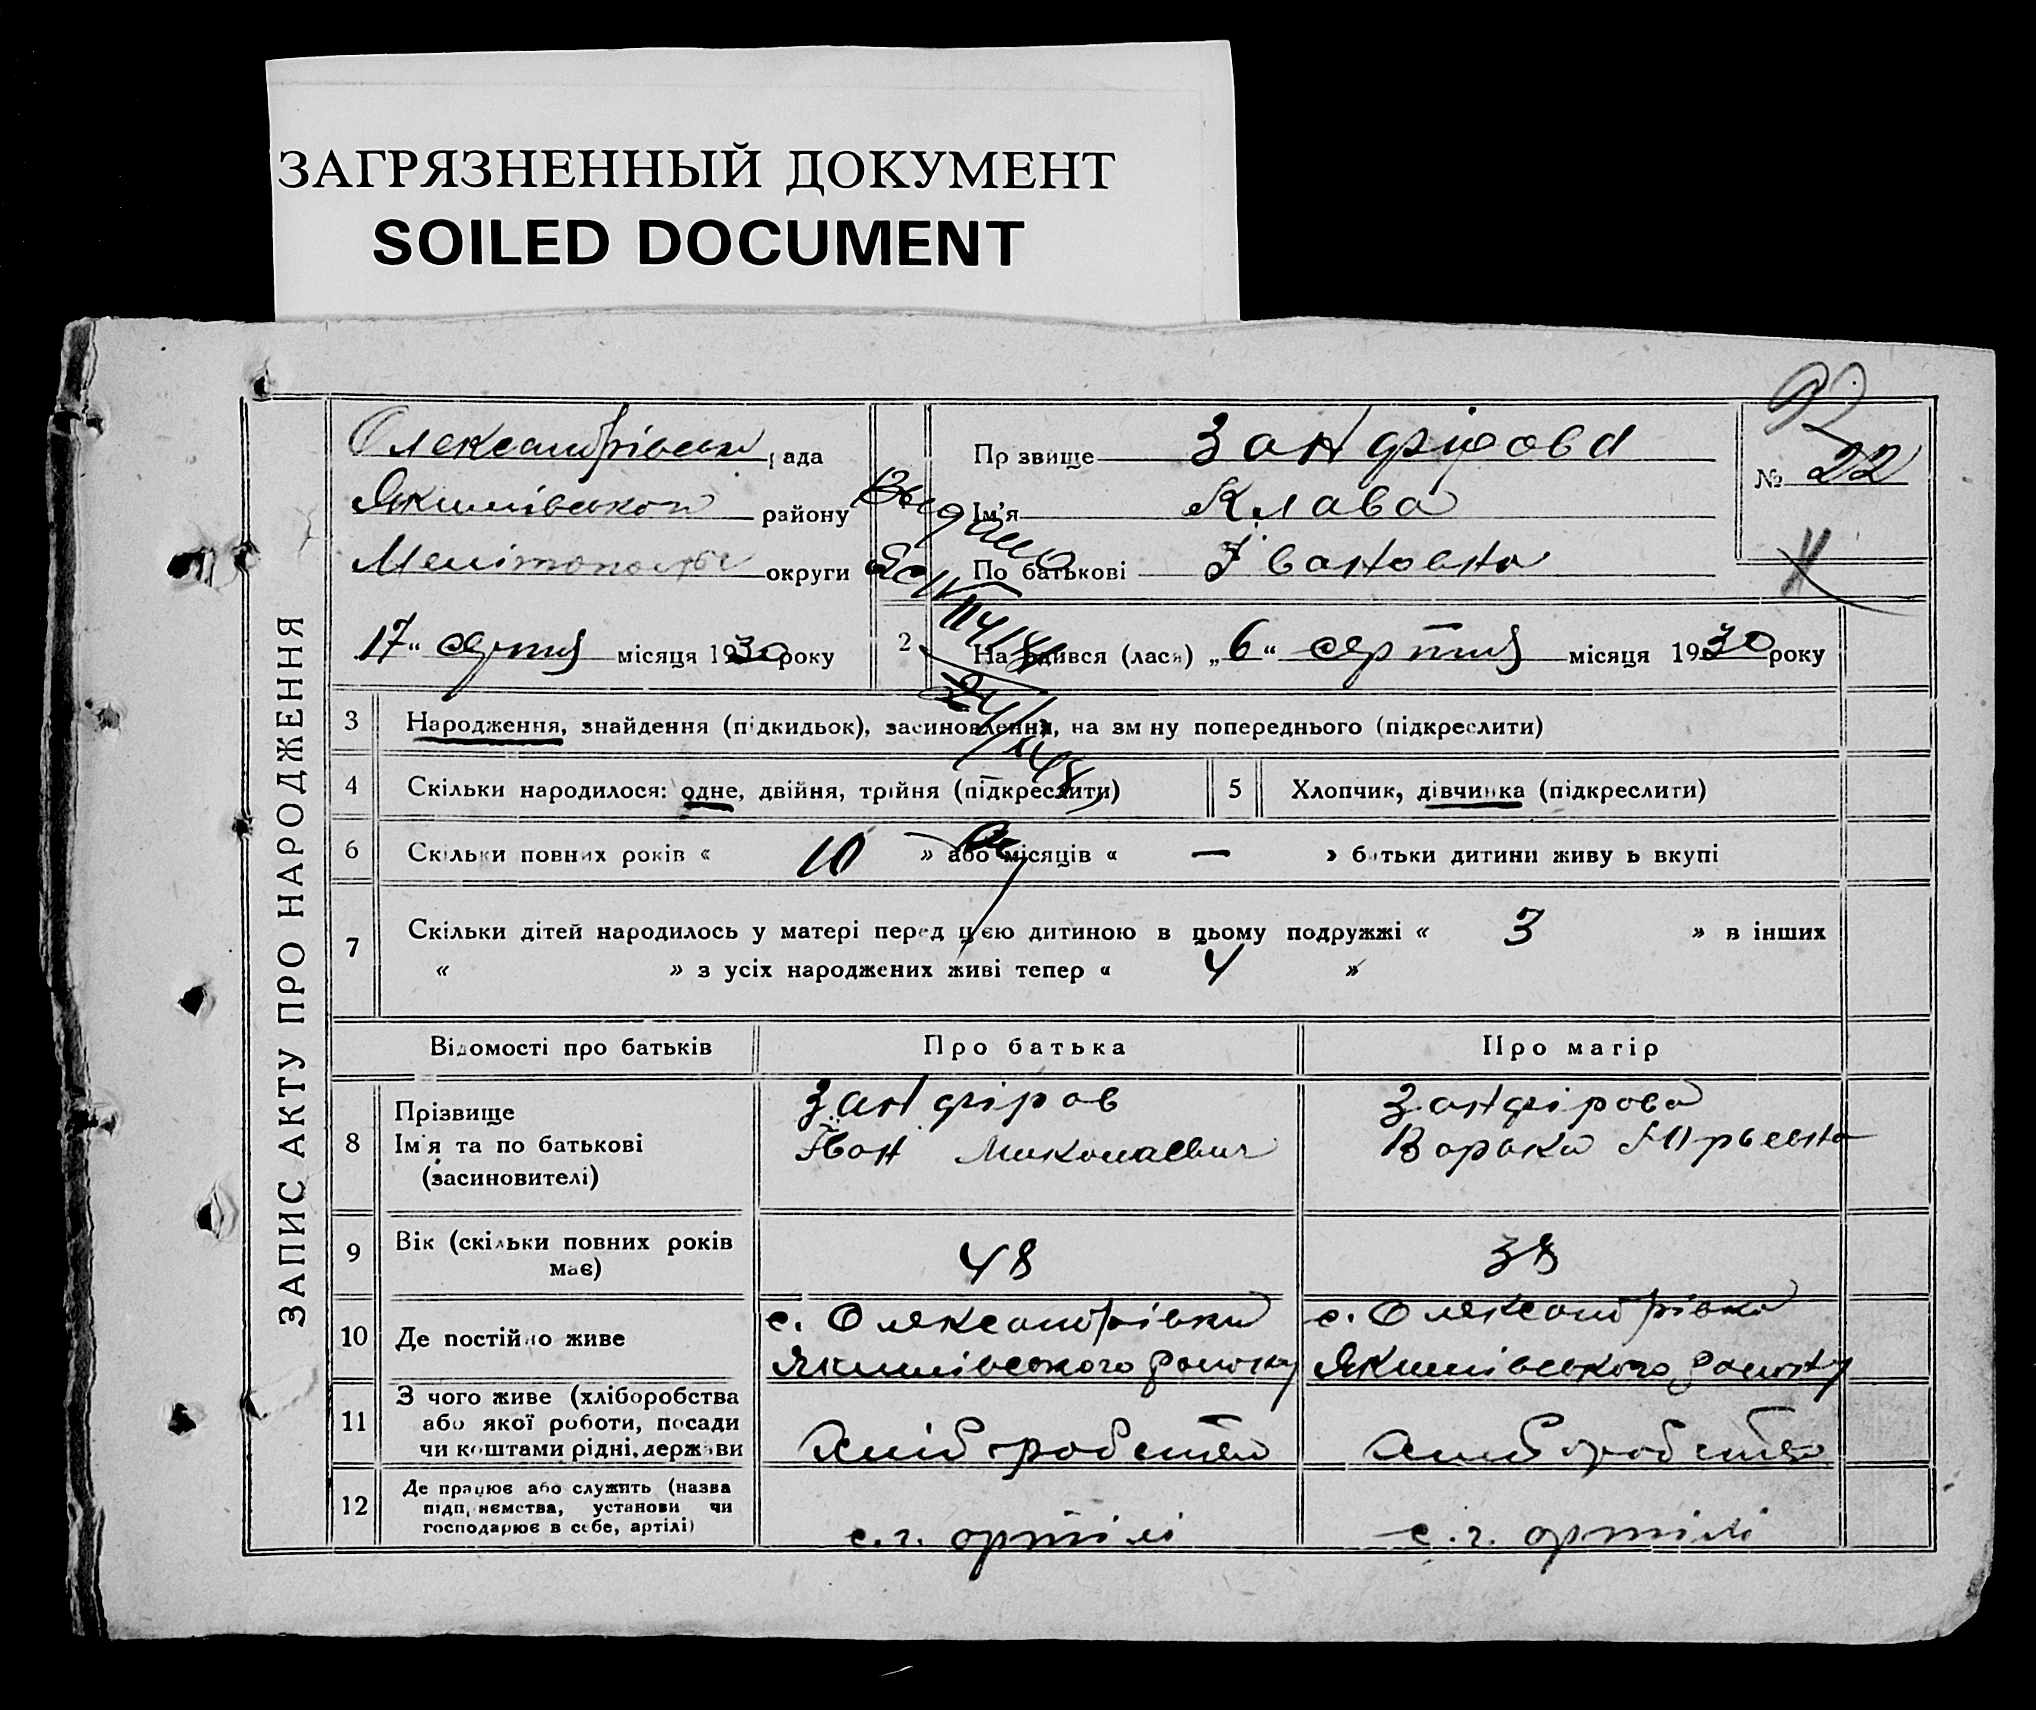 ЗАГРЯЗНЕННЫЙ ДОКУМЕНТ
SOILED DOCUMENT
ЗАПИС АКТУ ПРО НАРОДЖЕННЯ
Олександрівськ рада
Якимівського району
Мелітопольс округи
17 " серпня місяця 1930 року
Прізвище Занфірова
Ім'я Клава
По батькові Івановна
№ 22
Видано
2 Народився (лася) „ 6 “ серпня місяця 1930 року
3 Народження, знайдення (підкидьок), засиновлення, на зміну попереднього (підкреслити)
4 Скільки народилося: одне, двійня, трійня (підкреслити)
5 Хлопчик, дівчинка (підкреслити)
6 Скільки повних років « 10 » або місяців « — » батьки дитини живуть вкупі
7 Скільки дітей народилось у матері перед цією дитиною в цьому подружжі « 3 » в інших
« » з усіх народжених живі тепер « 4 »
Відомості про батьків Про батька Про матір
8 Прізвище Ім'я та по батькові (засиновителі)
Занфіров
Іван Миколаевич
Занфірова
Варька Юрьевна
9 Вік (скільки повних років має) 48 38
10 Де постійно живе
с. Олександрівки
Якимівського району
с. Олександрівка
Якимівського району
11 З чого живе (хліборобства
або якої роботи, посади
чи коштами рідні, держави
Хліборобство Хліборобство
12 Де працює або служить (назва
підприємства, установи чи
господарює в себе, артілі)
с.г. артілі с.г. артілі